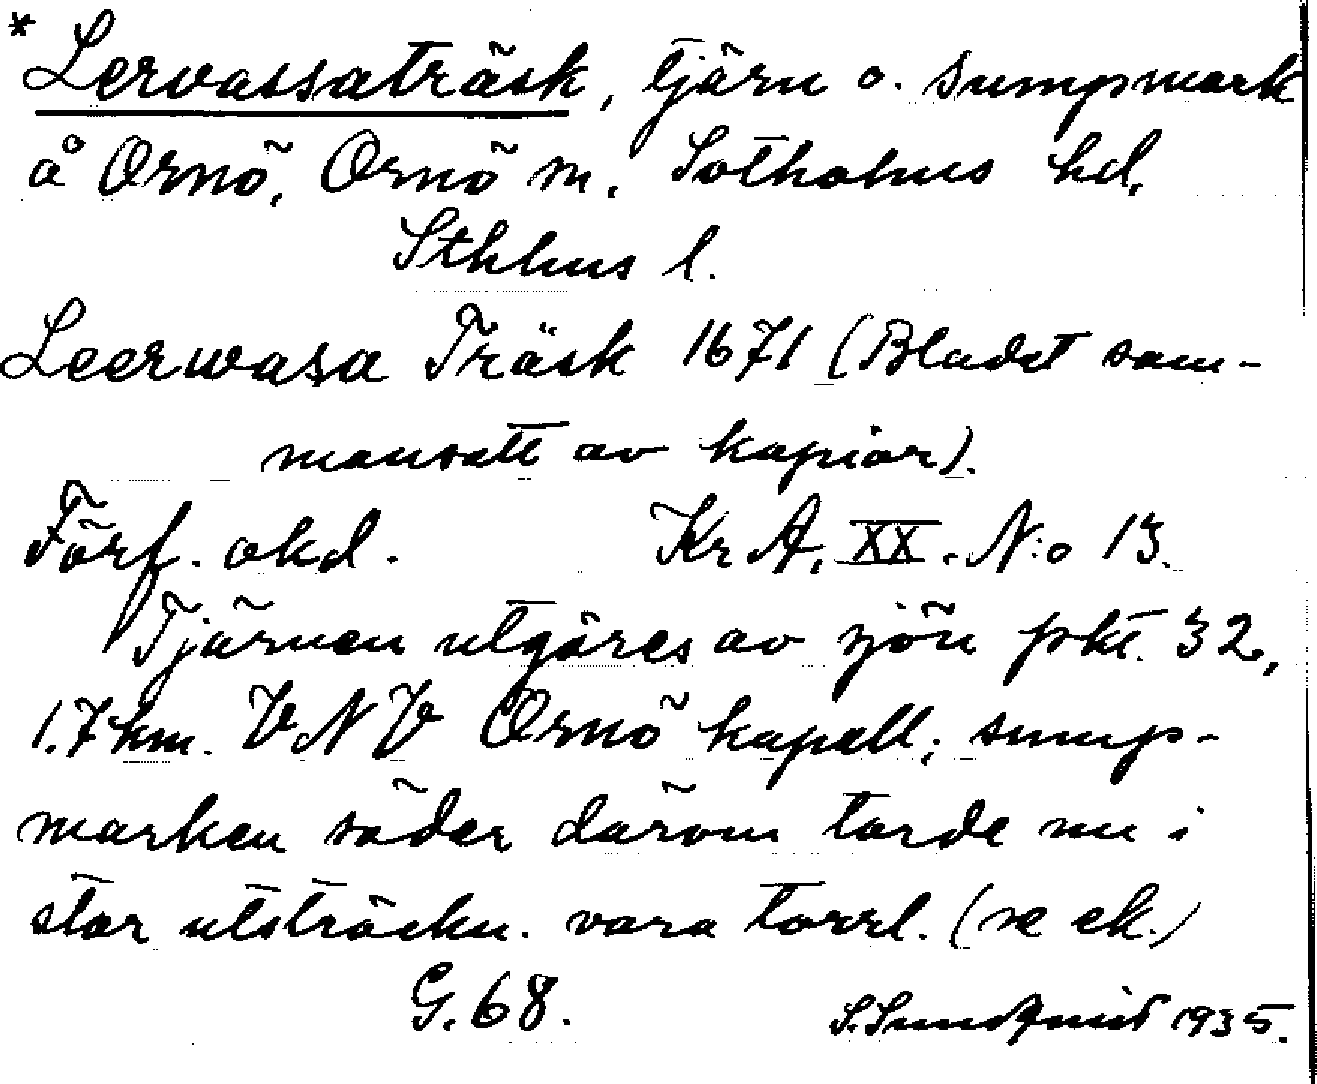 * Lervassaträsk, tjärn o. sumpmark
å Ornö, Ornö sn, Sotholms hd,
Sthlms l.
Leerwasa Träsk 1671 (Bladet sam-
mansatt av kopior).
Förf. okd. Kr A, XX. N:o 13.
Tjärnen utgöres av sjön pkt. 32,
1.7 km. VNV Ornö kapell; sump-
marken söder därom torde nu i
stor utsträckn. vara torrl. (se ek.)
G. 68. S. Sundqvist 1935.